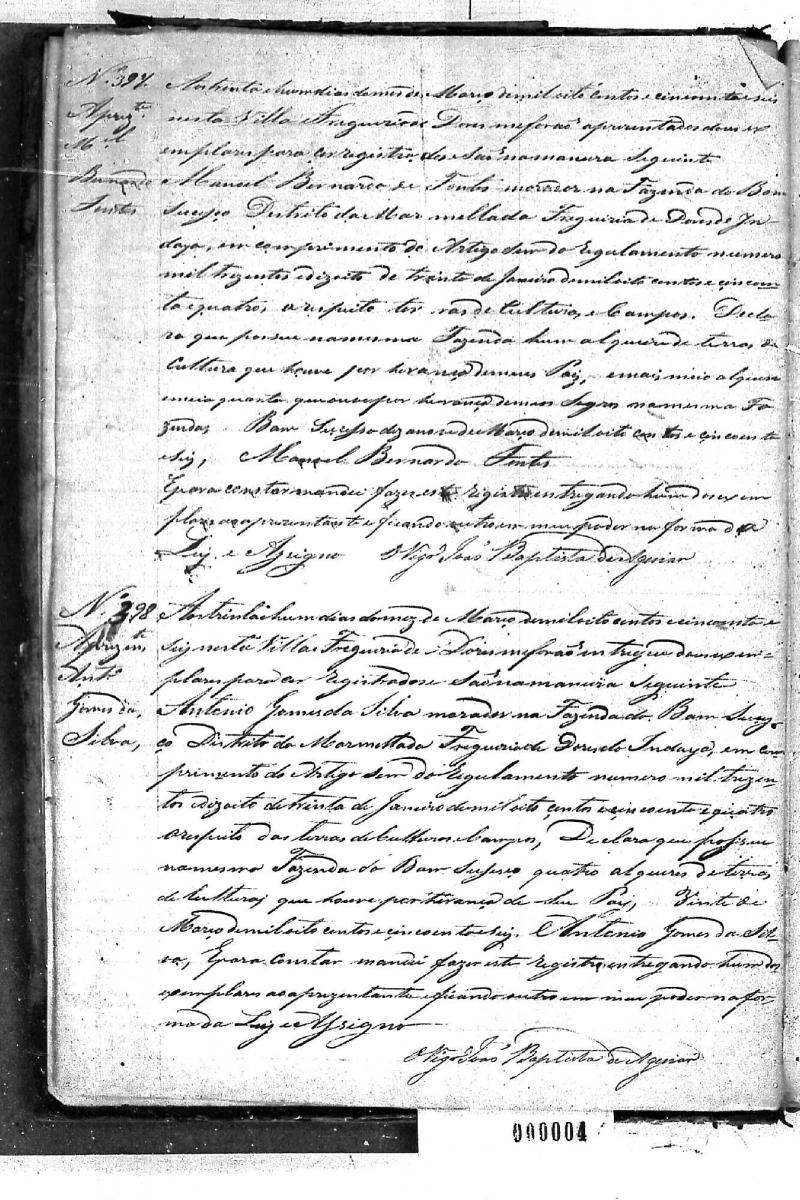 N.º 397.
Aprez.te
M.el
Bernardo
Fontes
Aos trinta e hum dias do mes de Março de mil oito centos e cincoenta e seis
nesta Villa e Freguezia de Dores me forão aprezentados dous ex
emplares para o registro dos e São na maneira Seguinte
Manoel Bernardo de Fontes morador na Fazenda do Bom
Sucesso Distrito da Marmellada Freguezia de Dores do In
daya, em comprimento do Artigo Sem do regulamento numero
mil trezentos e dizoito de trinta de Janeiro de mil oito centos e cincoen
ta e quatro, a respeito terras de Culturas, e Campos. Decla
ra que possue na mesma Fazenda hum alqueire de terras de
Cultura que houve por herança de meus Pais, e mais meio alqueire
e meia quarta que ouve por herança de meu Sogro na mesma Fa
zenda. Bom Sucesso dezanove de Março de mil oito centos e cincoenta
e seis, Manoel Bernardo Fontes
E para constar mandei fazer este registro entregando hum dos exem
plares ao aprezentante e ficando outro em meu poder na forma da
Lei e Assigno O Vig.º João Baptista de Aguiar
N.º 398
Aprezen.te
Ant.º
Gomes da
Silva,
Aos trinta e hum dias do mez de Março de mil oito centos e cincoenta e
seis nesta Villa e Freguezia de Dores me forão entregues dous exem
plares para ser registrados e São na maneira Seguinte
Antonio Gomes da Silva morador na Fazenda do Bom Suces
ço Distrito da Marmellada Freguezia de Dores do Indaya, em com
primento do Artigo Sem do Regulamento numero mil trezen
tos e dizoito de trinta de Janeiro de mil oito centos e cincoenta e quatro
a respeito das terras de Culturas e Campos, Declara que possue
na mesma Fazenda do Bom Susseço quatro alqueires de terras
de Culturas que houve por herança de seu Pais, Vinte de
Março de mil oito centos e cincoenta e seis. Antonio Gomes da Sil
va, E para Constar mandei fazer este registro entregando hum dos
exemplares ao aprezentante e ficando outro em meu poder na for
ma da Lei e Assigno
O Vig.º João Baptista de Aguiar
000004